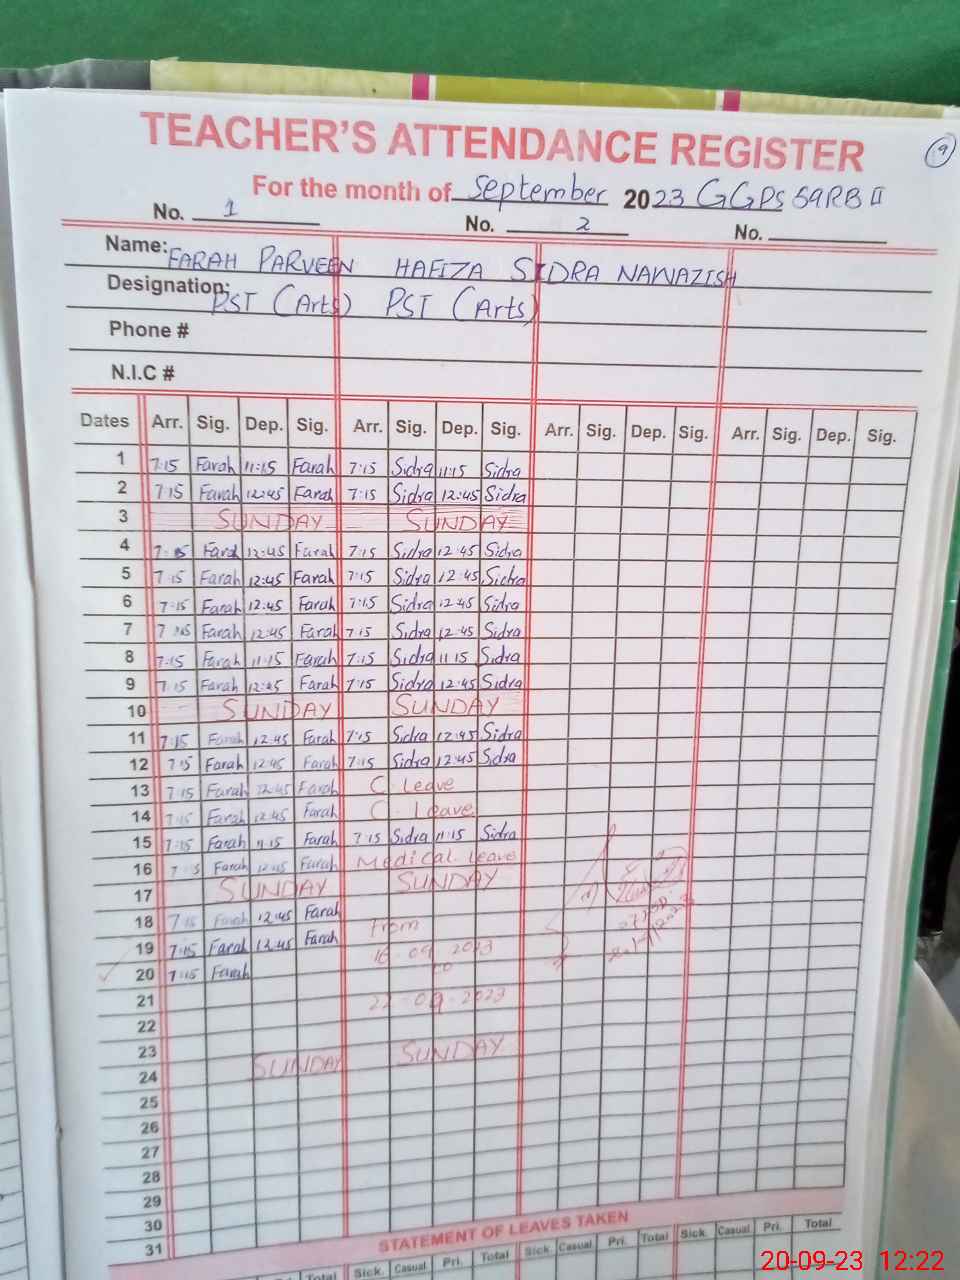 TEACHER'S ATTENDANCE REGISTER
9
For the month of September 2023 GGPS 59RB II
No. 1 No. 2 No.
Name: FARAH PARVEEN HAFIZA SIDRA NAWAZISH
Designation: PST (Arts) PST (Arts)
Phone #
N.I.C #
Dates Arr. Sig. Dep. Sig. Arr. Sig. Dep. Sig. Arr. Sig. Dep. Sig. Arr. Sig. Dep. Sig.
1 7:15 Farah 11:15 Farah 7:15 Sidra 11:15 Sidra
2 7:15 Farah 12:45 Farah 7:15 Sidra 12:45 Sidra
3 SUNDAY SUNDAY
4 7:15 Farah 12:45 Farah 7:15 Sidra 12:45 Sidra
5 7:15 Farah 12:45 Farah 7:15 Sidra 12:45 Sidra
6 7:15 Farah 12:45 Farah 7:15 Sidra 12:45 Sidra
7 7:15 Farah 12:45 Farah 7:15 Sidra 12:45 Sidra
8 7:15 Farah 11:15 Farah 7:15 Sidra 11:15 Sidra
9 7:15 Farah 12:45 Farah 7:15 Sidra 12:45 Sidra
10 SUNDAY SUNDAY
11 7:15 Farah 12:45 Farah 7:15 Sidra 12:45 Sidra
12 7:15 Farah 12:45 Farah 7:15 Sidra 12:45 Sidra
13 7:15 Farah 12:45 Farah C. Leave
14 7:15 Farah 12:45 Farah C. Leave
15 7:15 Farah 11:15 Farah 7:15 Sidra 11:15 Sidra
16 7:15 Farah 12:45 Farah Medical leave
17 SUNDAY SUNDAY
18 7:15 Farah 12:45 Farah From
19 7:15 Farah 12:45 Farah 16-09-2023
20 7:15 Farah to
21 22-09-2023
22
23 SUNDAY
24 SUNDAY
25
26
27
28
29
30
31
STATEMENT OF LEAVES TAKEN
Total Sick. Casual Pri. Total Sick. Casual Pri. Total Sick. Casual Pri. Total
20-09-23 12:22